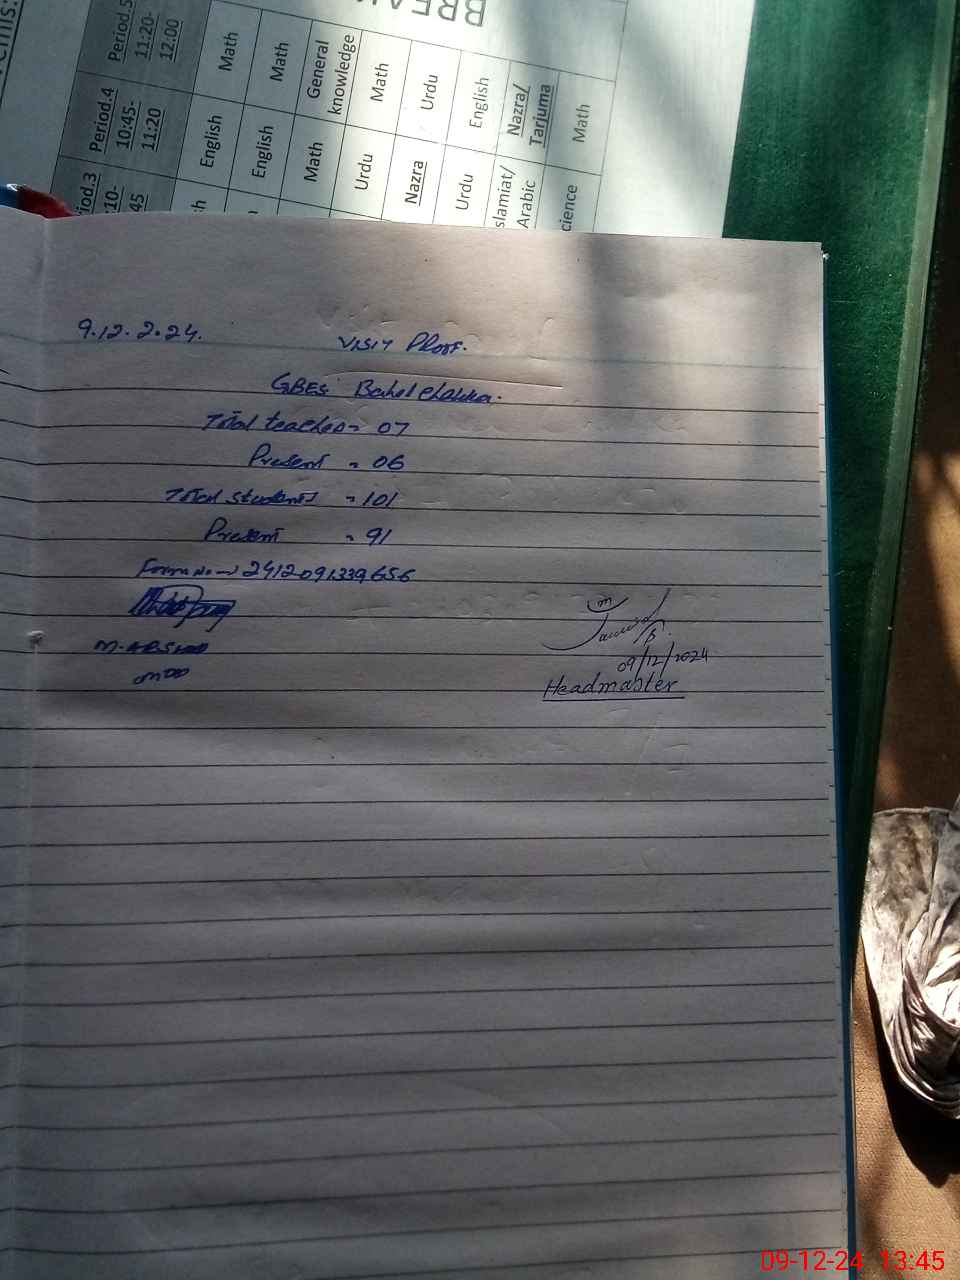 Period.3 Period.4 Period.5
10:45- 11:20-
45 11:20 12:00
English Math
English Math
Math General knowledge
Urdu Math
Nazra Urdu
Urdu English
Arabic Nazra/ Tarjuma
Math
9.12.2.24. VISIT Proof.
GBES
Total teacher = 07
Present = 06
Total students = 101
Present = 91
Form No → 2412091339656
M. ARSHAD
09/12/2024
Headmaster
09-12-24 13:45